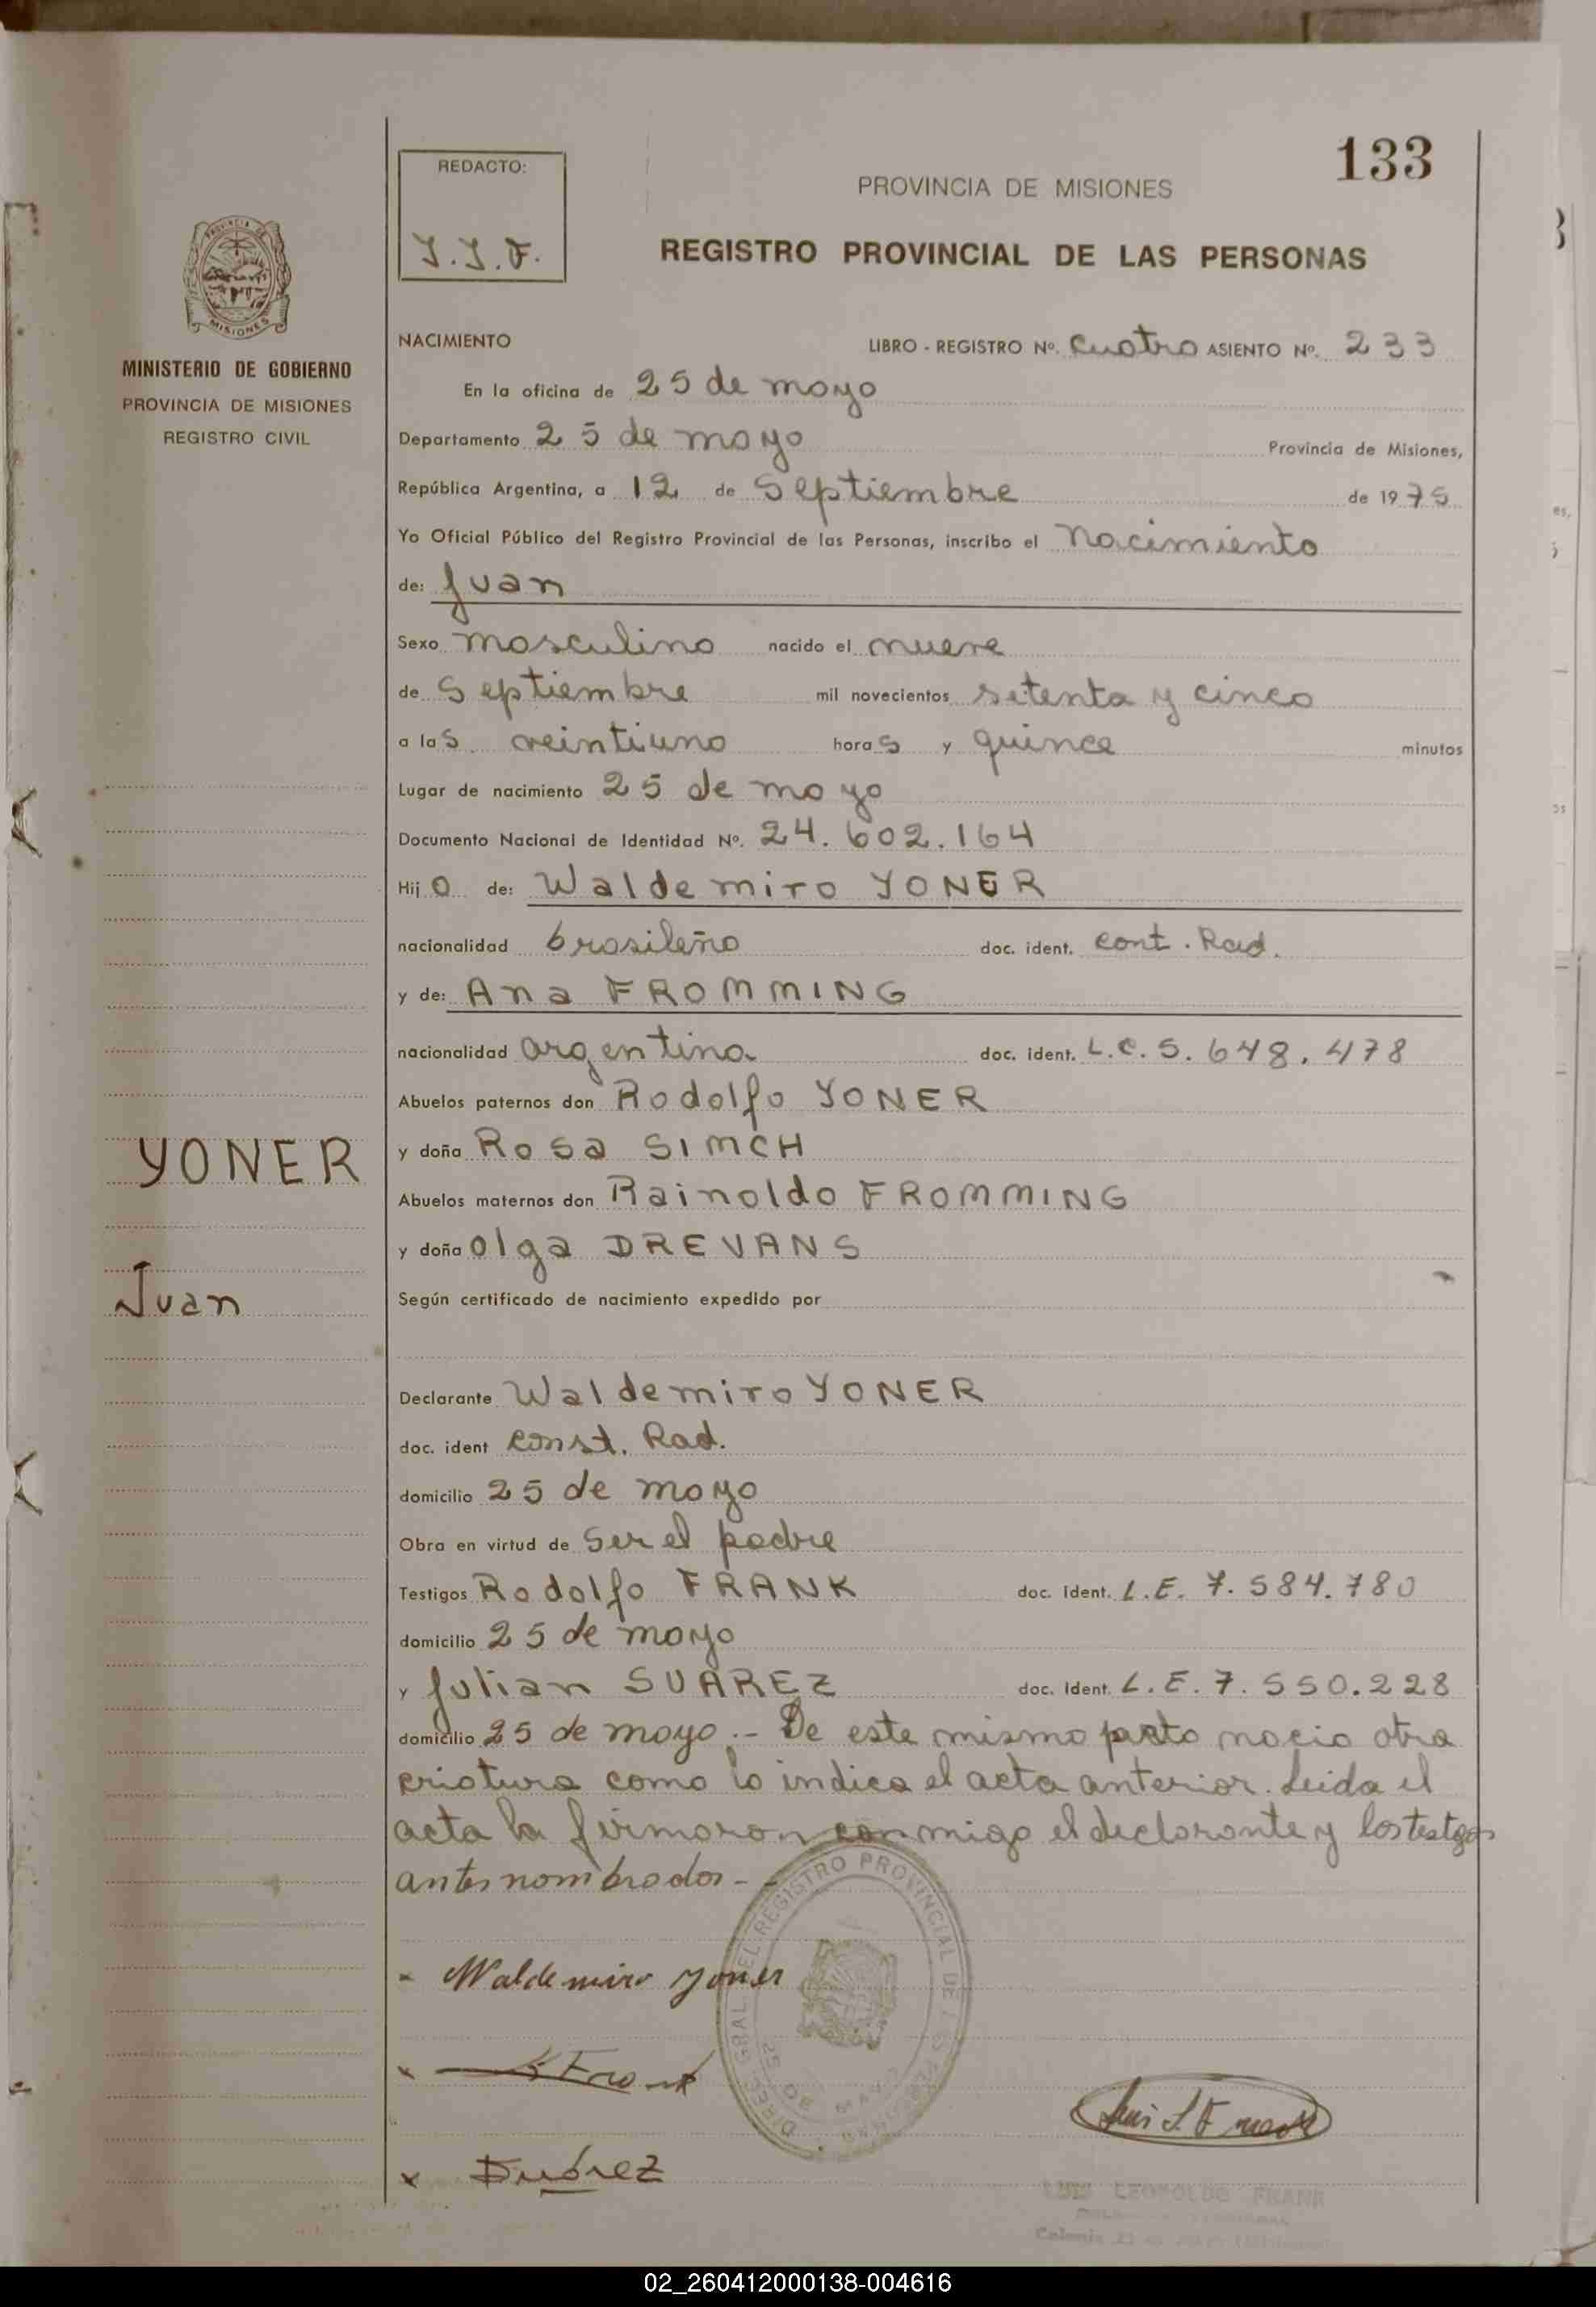 133
REDACTO:
PROVINCIA DE MISIONES
REGISTRO PROVINCIAL DE LAS PERSONAS
PROVINCIA DE
MISIONES
MINISTERIO DE GOBIERNO
PROVINCIA DE MISIONES
REGISTRO CIVIL
NACIMIENTO LIBRO - REGISTRO Nº. Cuatro ASIENTO Nº. 233
En la oficina de 25 de mayo
Departamento 25 de mayo Provincia de Misiones,
República Argentina, a 12 de Septiembre de 1975
Yo Oficial Público del Registro Provincial de las Personas, inscribo el Nacimiento
de: Juan
Sexo masculino nacido el nueve
de Septiembre mil novecientos setenta y cinco
a las veintiuno horas y quince minutos
Lugar de nacimiento 25 de mayo
Documento Nacional de Identidad Nº. 24.602.164
Hijo de: Waldemiro YONER
nacionalidad brasileño doc. ident. cont. Rad.
y de: Ana FROMMING
nacionalidad argentina doc. ident. L.C. 5.648.478
Abuelos paternos don Rodolfo YONER
YONER
y doña Rosa SIMCH
Abuelos maternos don Rainoldo FROMMING
y doña Olga DREVANS
Juan
Según certificado de nacimiento expedido por
Declarante Waldemiro YONER
doc. ident const. Rad.
domicilio 25 de mayo
Obra en virtud de Ser el padre
Testigos Rodolfo FRANK doc. ident. L.E. 7.584.780
domicilio 25 de mayo
y Julian SUAREZ doc. ident. L.E. 7.550.228
domicilio 25 de mayo.- De este mismo parto nacio otra
criatura como lo indica el acta anterior. Leida el
acta la firmaron conmigo el declarante y los testigos
antes nombrados.-
DIREC. GRAL. DEL REGISTRO PROVINCIAL DE LAS PERSONAS
25 DE MAYO
Waldemiro Yoner
Suárez
LUIS LEOPOLDO FRANK
02_260412000138-004616